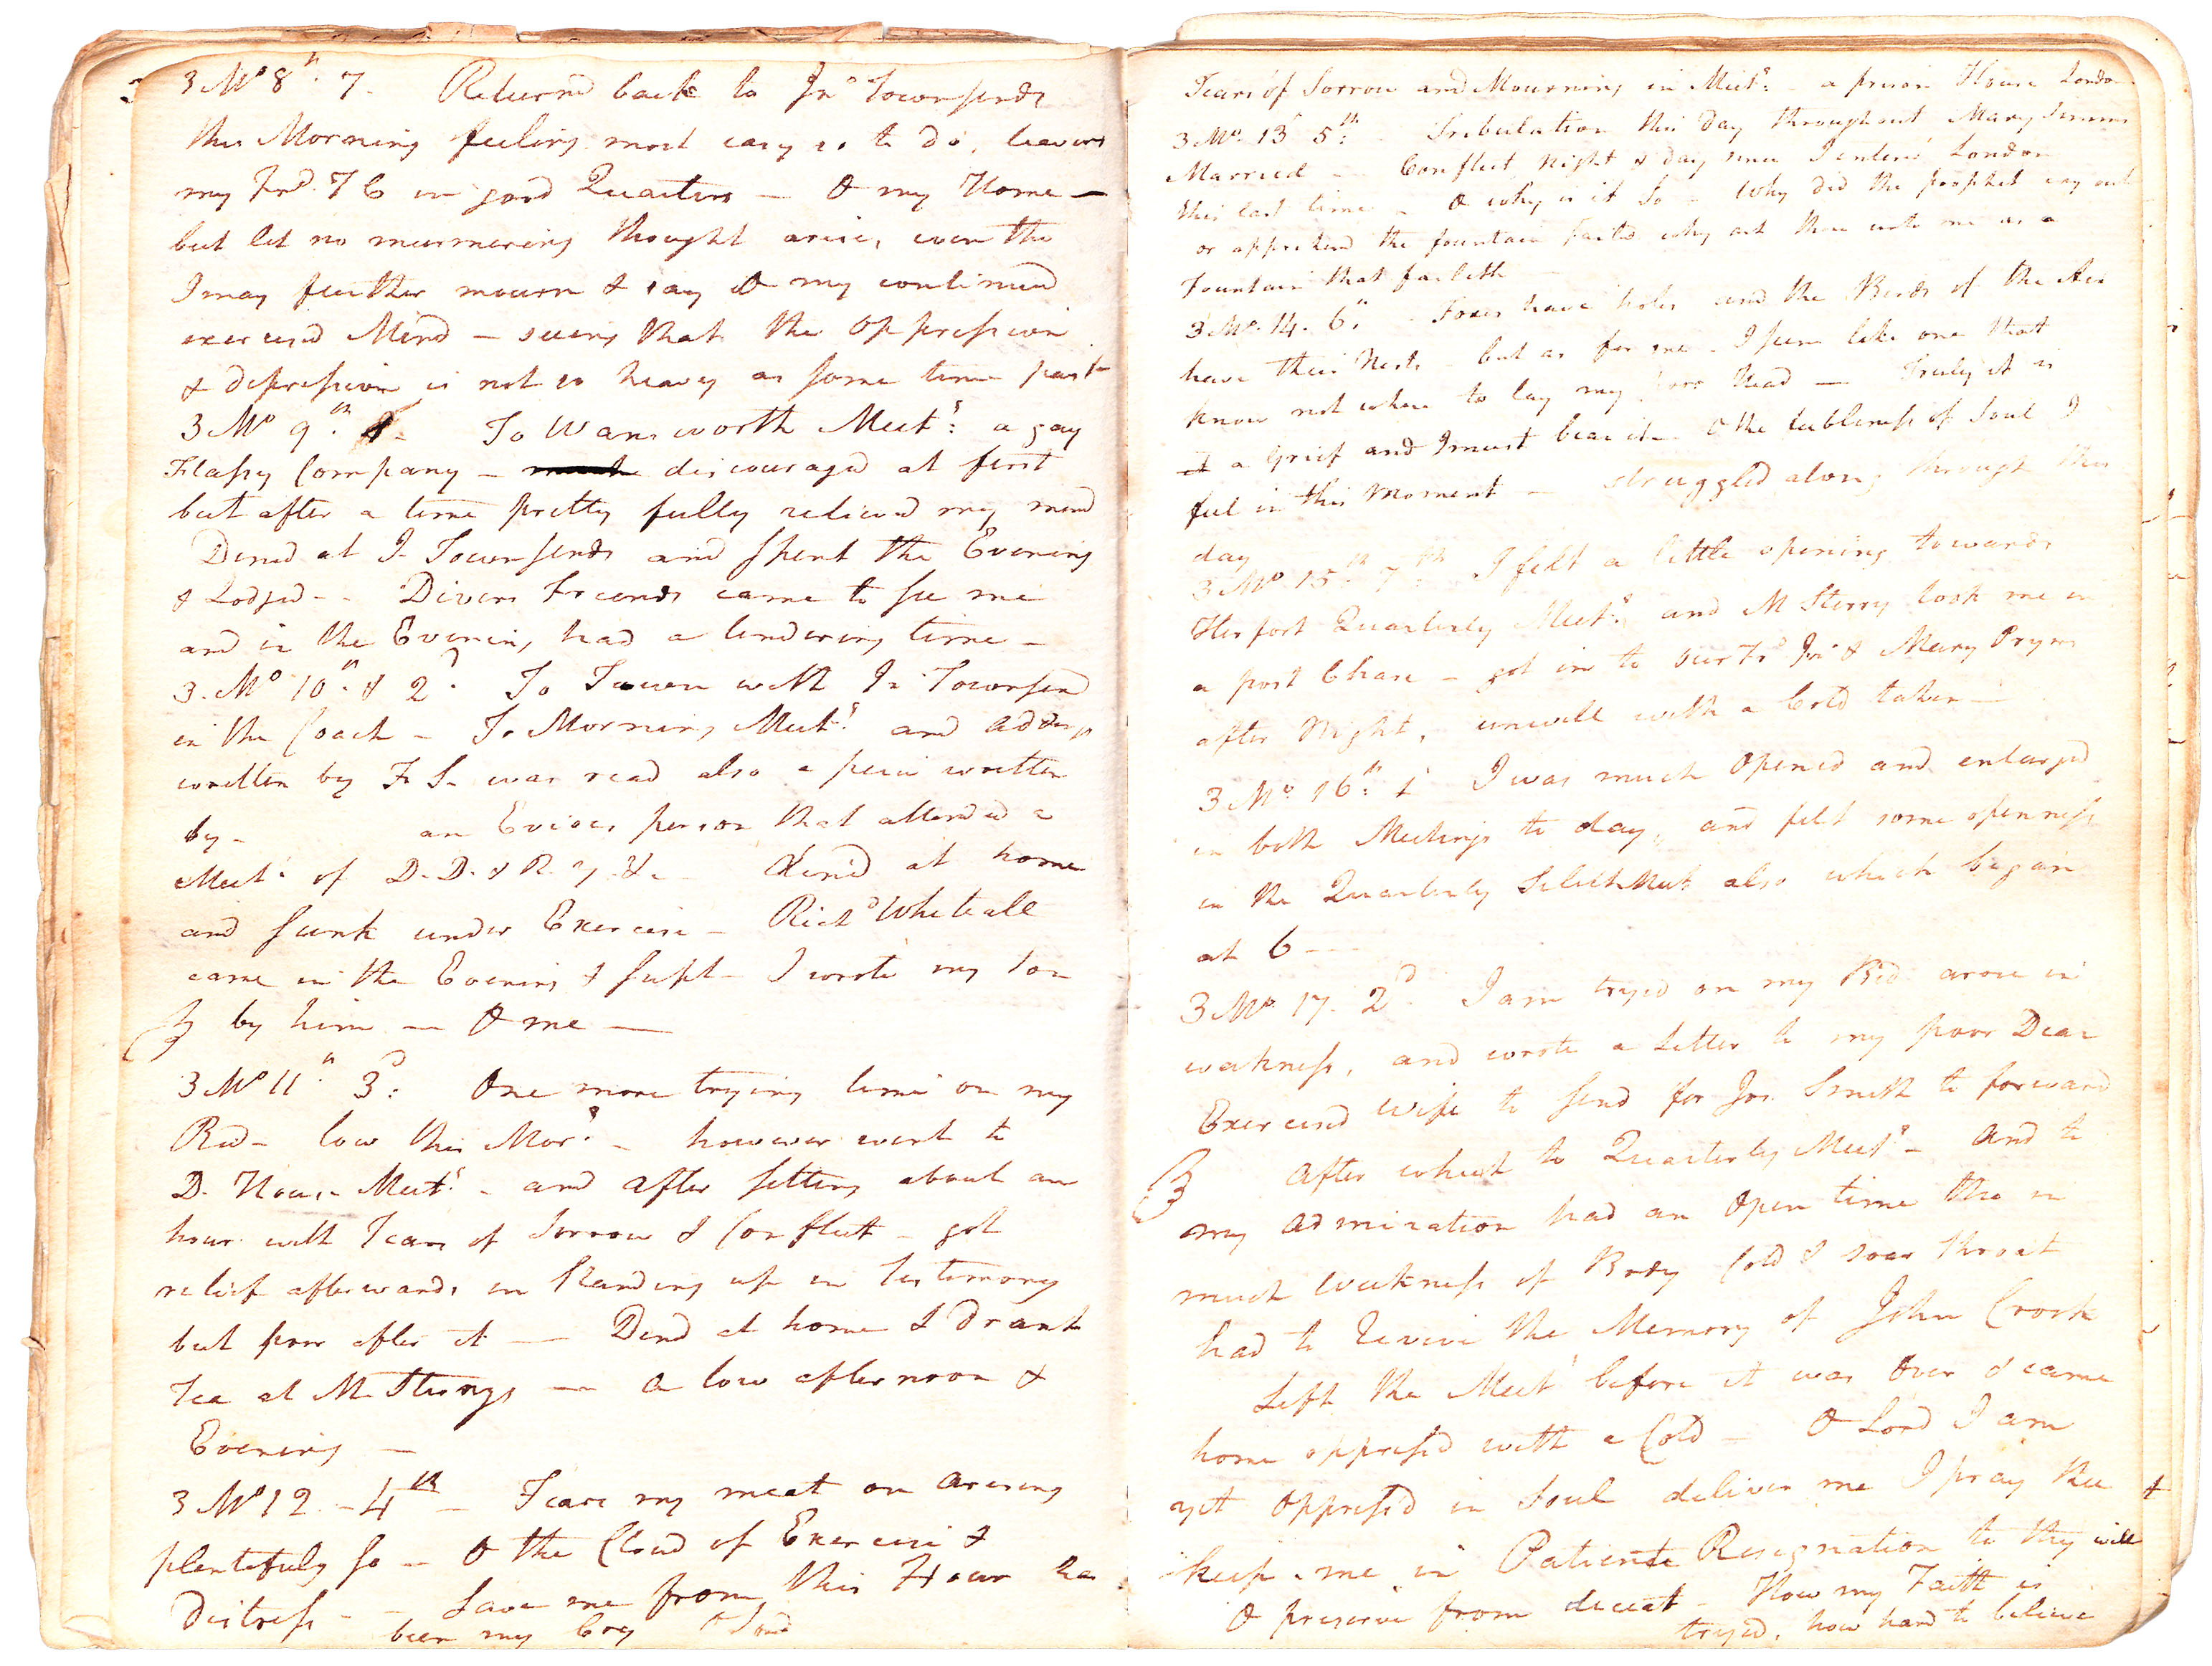 3 Mo 8th. 7. Returnd back to Jno Townsends
this Morning feeling most easy so to do, leaving
my Frd. T C in good Quarters — O my Home —
but let no murmering thought arise, even tho
I may further mourn & say O my continued
exercisd Mind — seeing that the oppression
& depression is not so heavy as some time past
3 Mo 9th. 1. To Wansworth Meetg: a gay
Flashy Company — discouragd at first
but after a time pretty fully relievd my mind
Dined at J. Townsends and spent the Evening
& Lodged - Divers Friends came to see me
and in the Evening had a tendering time —
3. Mo 10th. & 2d. To Town with Jn Townsend
in the Coach — To Morning Meetg. and address
written by F S. was read also a piece written
by - an Envious person that attended a
Meetg of D. D. & R. Y. &. Dined at home
and sunk under Exercise — Richd Whiteall
came in the Evening & supt — I wrote my son
by him — O me —
3 Mo 11th 3d: One more trying time on my
Bed — low this Morg. — however went to
D. House Meetg. — and after sitting about an
hour with Tears of Sorrow & Conflict — got
relief afterwards in standing up in testimony
but poor after it — Dind at home & Drank
Tea at M Sterrys — a low afternoon &
Evening —
3 Mo 12. - 4th — Tears my meat on arising
plentifuly so — O the Cloud of Exercise &
Distress - Save me from this Hour has
been my Cry O Lord
Tears of Sorrow and Mourning in Meetg: — a prison House London
3 Mo. 13 5th: Tribulation this day throughout Mary
Married — Conflict night & day since I enterd London
this last time — O why is it so — Why did the prophet cry out
or apprehend the fountain faild why art thou unto me as a
Fountain that faileth
3 Mo. 14. 6th. — Foxes have holes and the Birds of the Air
have their Nests — but as for me — I seem like one that
know not where to lay my poor Head — Truly it is
a Grief and I must bear it — O the feebleness of Soul I
feel in this moment — struggled along through this
day
3 Mo 15th. 7th I felt a little opening towards
Herfort Quarterly Meetg. and M Sterry took me in
a post Chase — got in to our Frd Jno & Mary Pryrs
after Night, unwell with a Cold taken —
3 Mo. 16th. 1 I was much opened and enlarged
in both Meetings to day, and felt some openness
in the Quarterly Select Meet also which began
at 6 —
3 Mo 17. 2d. I am tryed on my Bed arose in
weakness, and wrote a Letter to my poor Dear
Exercised wife to send for Jos. Smith to forward
After which to Quarterly Meetg — and to
my admiration had an open time tho in
much weakness of Body Cold & soar throat
had to revive the Memory of John Crook
Left the Meetg before it was over & came
home oppressd with a Cold — O Lord I am
yet oppressd in Soul deliver me I pray thee &
keep me in Patiente Resignation to thy will
& preserve from deceit — How my Faith is
tryed, how hard to believe